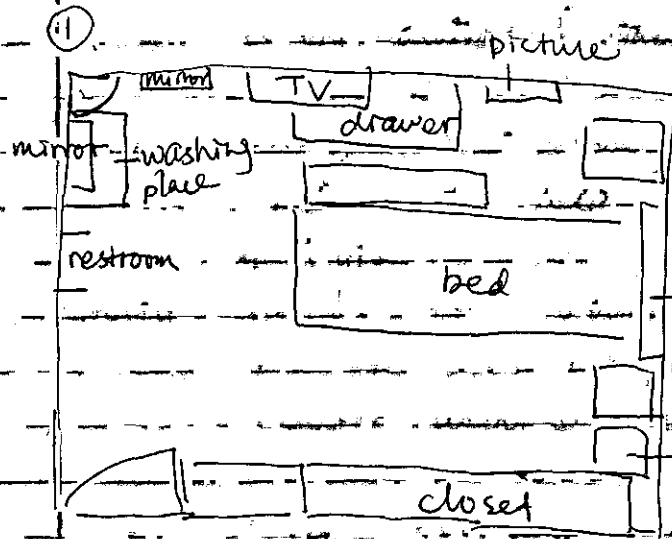 picture
mirror
TV
drawer
mirror
washing
place
restroom
bed
closet